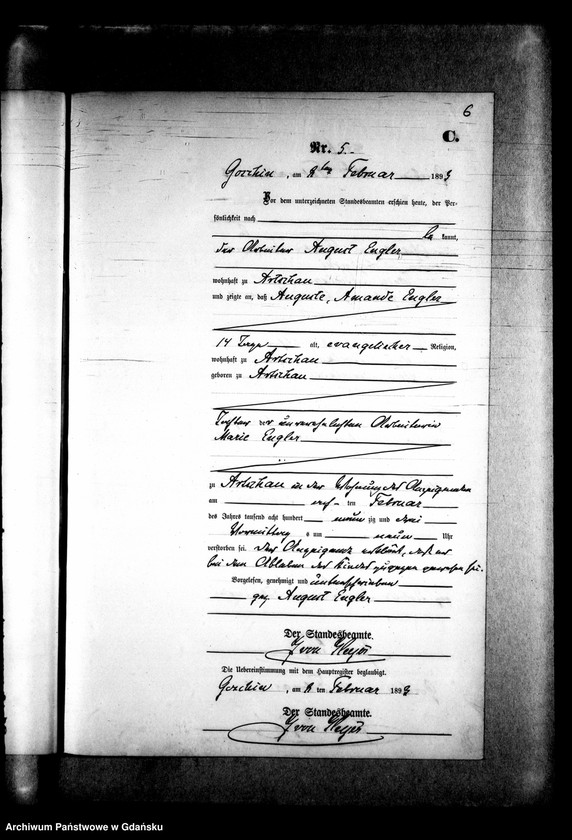 6
C.
Nr. 5.
Goschin, am 8ten Februar 1893
Vor dem unterzeichneten Standesbeamten erschien heute, der Per-
sönlichkeit nach
be kannt,
der Arbeiter August Engler
wohnhaft zu Artschau
und zeigte an, daß Auguste, Amande Engler
14 Tage alt, evangelischer Religion,
wohnhaft zu Artschau
geboren zu Artschau
Tochter der unverehelichten Arbeiterin
Marie Engler
zu Artschau in der Wohnung des Anzeigenden
am ten Februar
des Jahres tausend acht hundert neun zig und drei
Vormittags um neun Uhr
verstorben sei. Der Anzeigende erklärt, daß er
bei dem Ableben des Kindes zugegen gewesen sei.
Vorgelesen, genehmigt und unterschrieben
gez. August Engler
Der Standesbeamte.
von Heyer
Die Uebereinstimmung mit dem Hauptregister beglaubigt.
Goschin, am 8 ten Februar 1893
Der Standesbeamte.
von Heyer
Archiwum Państwowe w Gdańsku